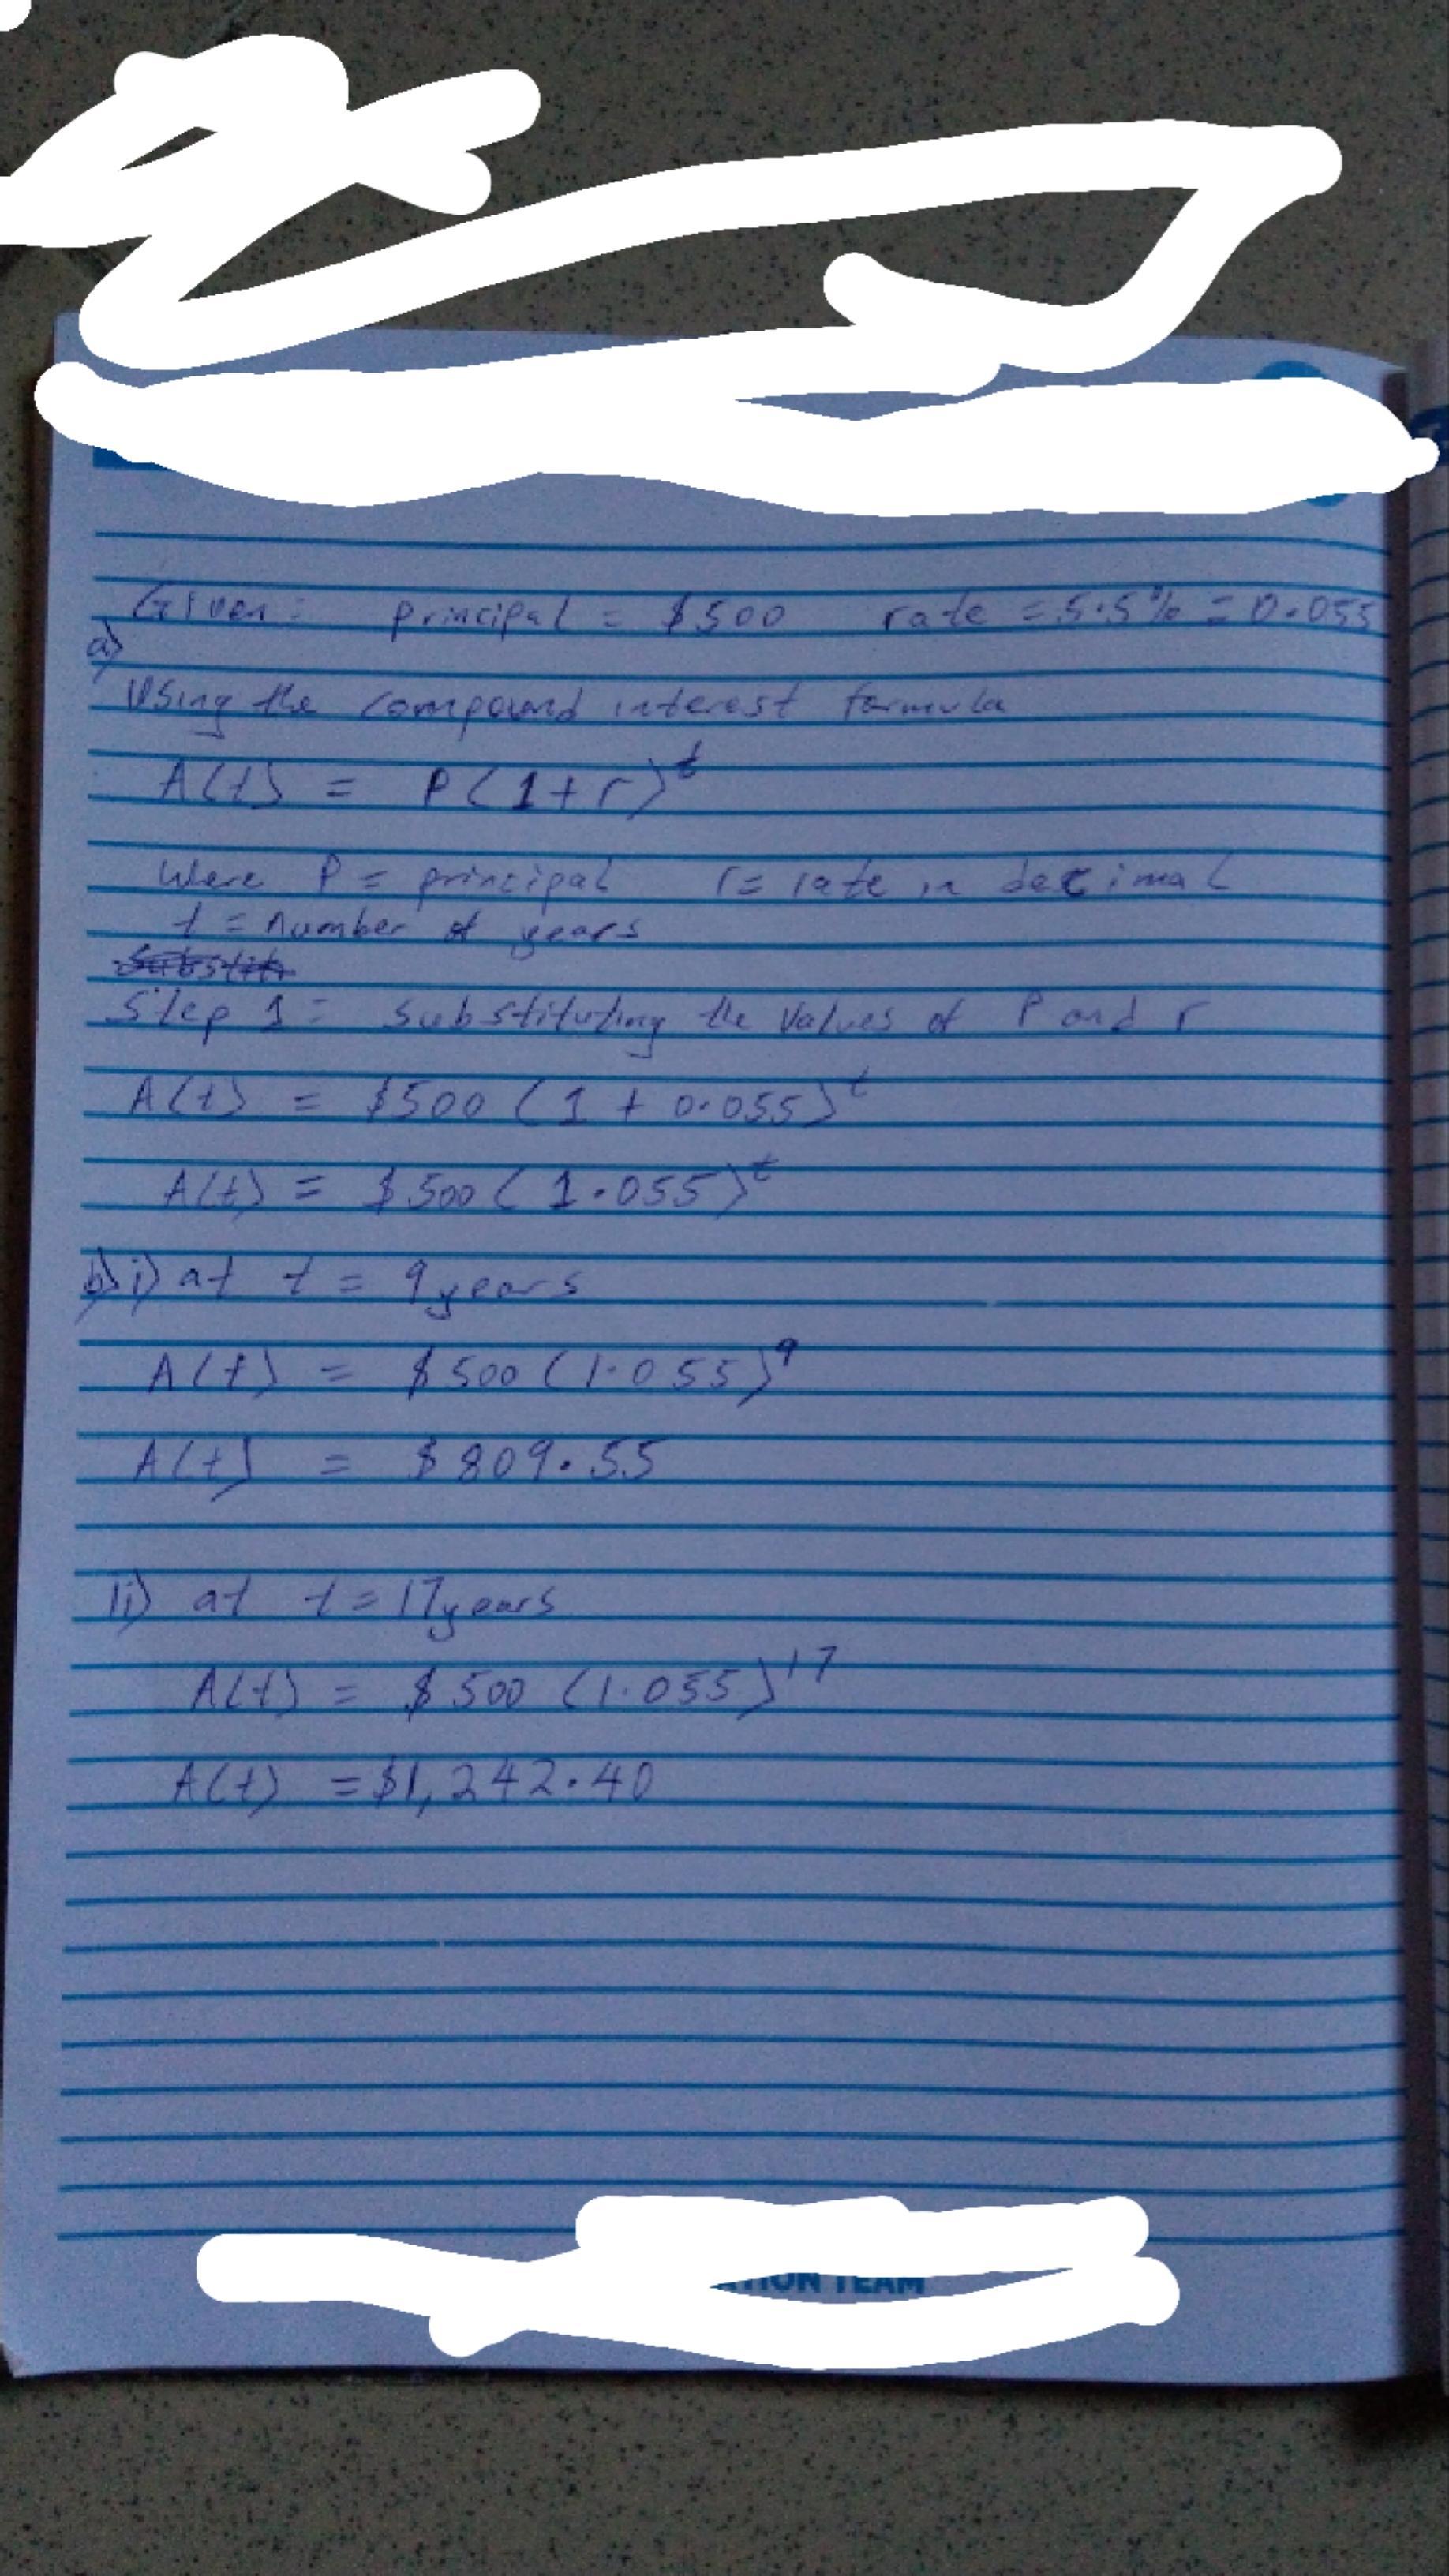 Given: principal = $500 rate = 5.5% = 0.055
a)
Using the compound interest formula
A(t) = P(1+r)^t
Were P = principal r = rate in decimal
t = number of years
Step 1: substituting the values of P and r
A(t) = $500 (1 + 0.055)^t
A(t) = $500 (1.055)^t
b) i) at t = 9 years
A(t) = $500 (1.055)^9
A(t) = $809.55
ii) at t = 17 years
A(t) = $500 (1.055)^17
A(t) = $1,242.40
TEAM